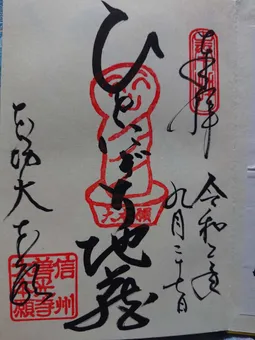 奉拝
令和二年
九月二十七日
ひとにぎり地蔵
大本願
大本願
信州
善光寺